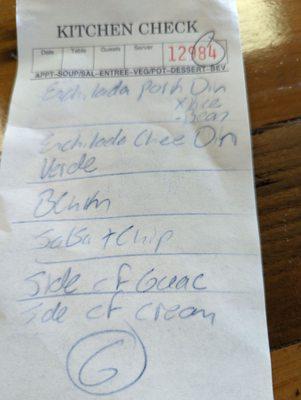 KITCHEN CHECK
Date Table Guests Server
12984
APPT-SOUP/SAL-ENTREE-VEG/POT-DESSERT-BEV
Enchilada pork Din
x rice
- Bean
Enchilada Chee Din
Verde
Salsa + Chip
Side of Guac
Side of cream
6